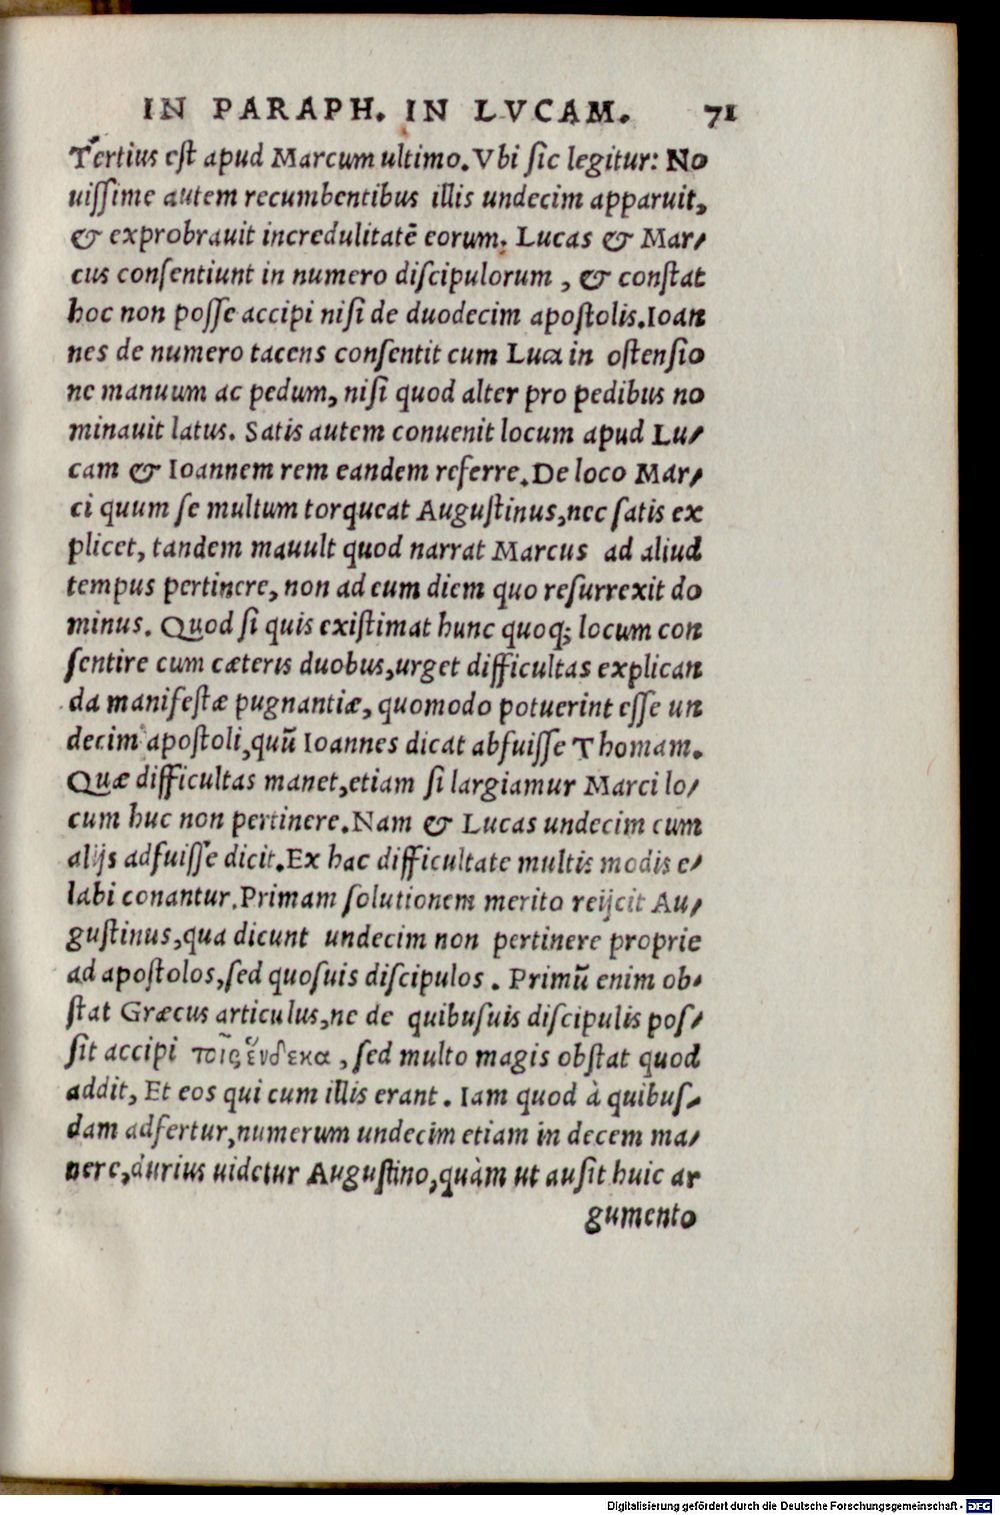 IN PARAPH. IN LVCAM. 71
Tertius eſt apud Marcum ultimo. Vbi ſic legitur: No
uiſſime autem recumbentibus illis undecim apparuit,
& exprobrauit incredulitatē eorum. Lucas & Mar-
cus conſentiunt in numero diſcipulorum, & conſtat
hoc non poſſe accipi niſi de duodecim apoſtolis. Ioan
nes de numero tacens conſentit cum Luca in oſtenſio
ne manuum ac pedum, niſi quod alter pro pedibus no
minauit latus. Satis autem conuenit locum apud Lu-
cam & Ioannem rem eandem referre. De loco Mar-
ci quum ſe multum torqueat Auguſtinus, nec ſatis ex
plicet, tandem mauult quod narrat Marcus ad aliud
tempus pertinere, non ad eum diem quo reſurrexit do
minus. Quod ſi quis exiſtimat hunc quoq; locum con
ſentire cum cæteris duobus, urget difficultas explican
da manifeſtæ pugnantiæ, quomodo potuerint eſſe un
decim apoſtoli, quū Ioannes dicat abfuiſſe Thomam.
Quæ difficultas manet, etiam ſi largiamur Marci lo-
cum huc non pertinere. Nam & Lucas undecim cum
alijs adfuiſſe dicit. Ex hac difficultate multis modis e-
labi conantur. Primam ſolutionem merito reijcit Au-
guſtinus, qua dicunt undecim non pertinere proprie
ad apoſtolos, ſed quoſuis diſcipulos. Primū enim ob-
ſtat Græcus articulus, ne de quibuſuis diſcipulis poſ-
ſit accipi τοῖς ἕνδεκα, ſed multo magis obſtat quod
addit, Et eos qui cum illis erant. Iam quod à quibuſ-
dam adfertur, numerum undecim etiam in decem ma-
nere, durius uidetur Auguſtino, quàm ut auſit huic ar
gumento
Digitalisierung gefördert durch die Deutsche Forschungsgemeinschaft - DFG